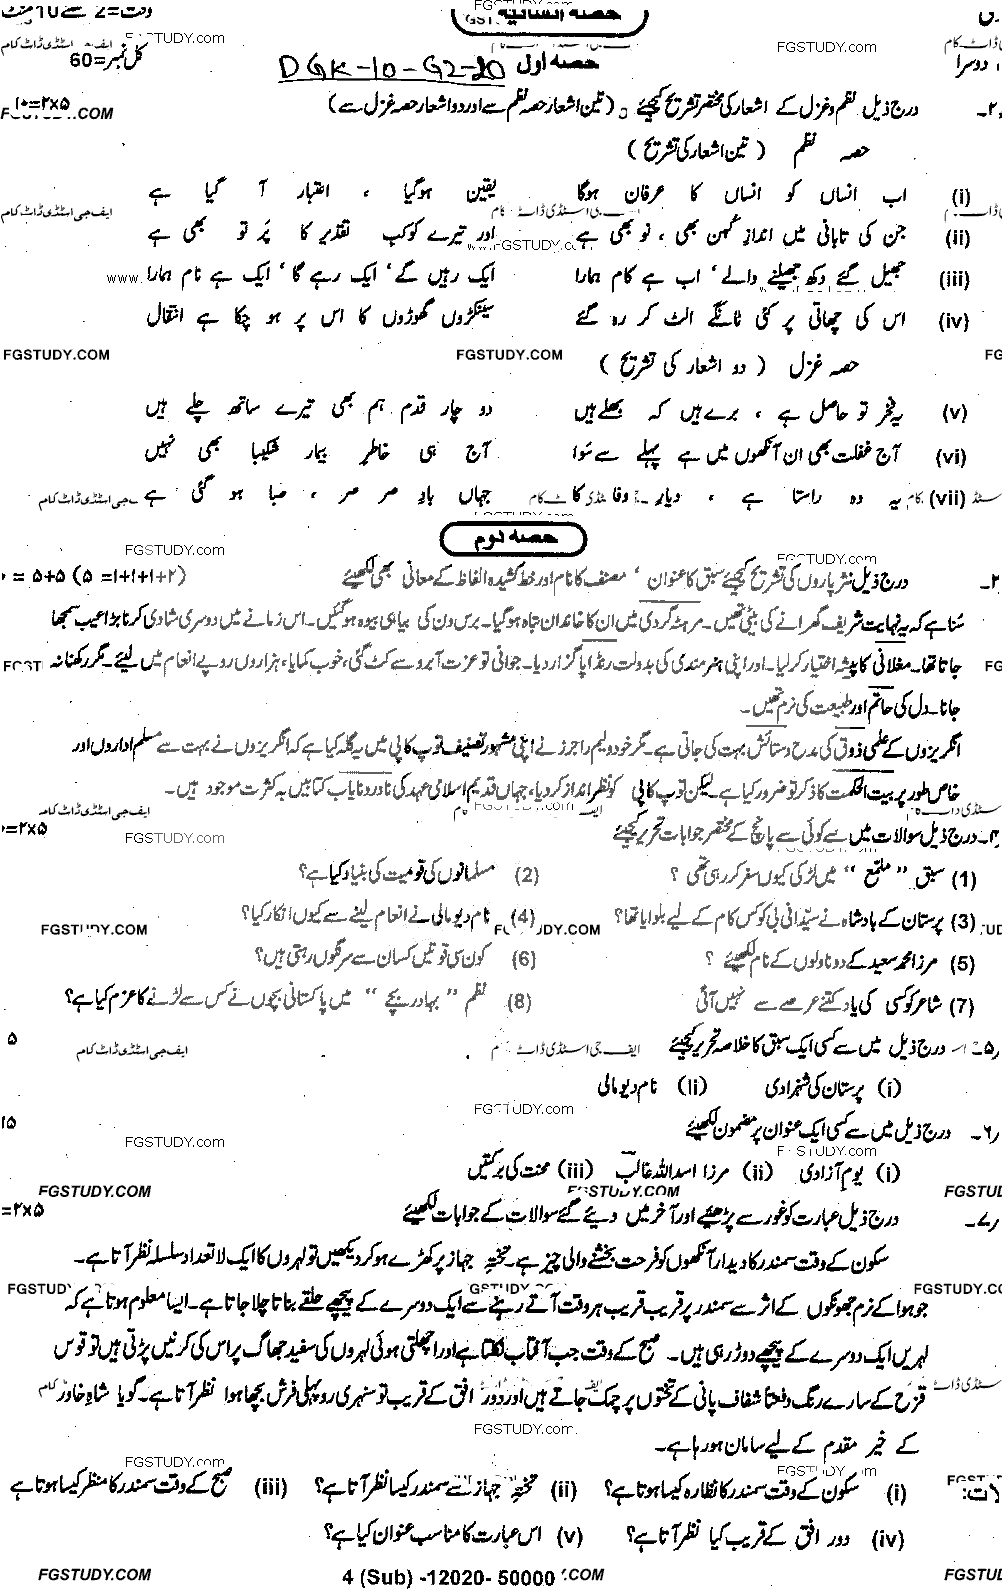 وقت=2 سے 10 منٹ حصہ انشائیہ
FGSTUDY.com FGSTUDY.COM
ایف جی اسٹڈی ڈاٹ کام
کل نمبر=60 DGK-10-G2-20 حصہ اول دوسرا
۲۔ درج ذیل نظم و غزل کے اشعار کی مختصر تشریح کیجئے ۔ (تین اشعار حصہ نظم سے اور دو اشعار حصہ غزل سے) ۱۰=۲x۵
حصہ نظم (تین اشعار کی تشریح)
(i) اب انساں کو انساں کا عرفان ہوگا یقین ہوگیا ، اعتبار آ گیا ہے
ایف جی اسٹڈی ڈاٹ کام
(ii) جن کی تابانی میں انداز کہن بھی ، نو بھی ہے اور تیرے کوکب تقدیر کا پر تو بھی ہے
(iii) جھیل گئے دکھ جھیلنے والے ' اب ہے کام ہمارا ایک رہیں گے' ایک رہے گا ' ایک ہے نام ہمارا
(iv) اس کی چھاتی پر کئی تانگے الٹ کر رہ گئے سینکڑوں گھوڑوں کا اس پر ہو چکا ہے انتقال
FGSTUDY.COM FGSTUDY.COM
حصہ غزل (دو اشعار کی تشریح)
(v) یہ فخر تو حاصل ہے ، برے ہیں کہ بھلے ہیں دو چار قدم ہم بھی تیرے ساتھ چلے ہیں
(vi) آج غفلت بھی ان آنکھوں میں ہے پہلے سے سوا آج ہی خاطر بیمار شکیبا بھی نہیں
(vii) یہ وہ راستا ہے ، دیار وفا کا جہاں باد صر صر ، صبا ہو گئی ہے
حصہ دوم
FGSTUDY.com FGSTUDY.com
درج ذیل نثر پاروں کی تشریح کیجئے سبق کا عنوان ' مصنف کا نام اور خط کشیدہ الفاظ کے معانی بھی لکھیئے (۲+۱+۱+۱= ۵) ۵+۵ =
سنا ہے کہ یہ نہایت شریف گھرانے کی بیٹی تھیں۔ مرہٹہ گردی میں ان کا خاندان تباہ ہوگیا۔ برس دن کی بیاہی بیوہ ہوگئیں۔ اس زمانے میں دوسری شادی کرنا بڑا عیب سمجھا
جاتا تھا۔ مغلانی کا پیشہ اختیار کرلیا۔ اور اپنی ہنرمندی کی بدولت رنڈاپا گزار دیا۔ جوانی تو عزت آبرو سے کٹ گئی، خوب کمایا، ہزاروں روپے انعام میں لیئے۔ مگر رکھنا نہ
جانا۔ دل کی حاتم اور طبیعت کی نرم تھیں۔
انگریزوں کے علمی ذوق کی مدح و ستائش بہت کی جاتی ہے۔ مگر خود ولیم راجرز نے اپنی مشہور تصنیف توپ کاپی میں یہ گلہ کیا ہے کہ انگریزوں نے بہت سے مسلم اداروں اور
خاص طور پر بیت الحکمت کا ذکر تو ضرور کیا ہے۔ لیکن توپ کاپی کو نظر انداز کر دیا، جہاں قدیم اسلامی عہد کی نادر و نایاب کتابیں بہ کثرت موجود ہیں۔
درج ذیل سوالات میں سے کوئی سے پانچ کے مختصر جوابات تحریر کیجئے =۲x۵
FGSTUDY.com
(1) سبق " ملمع " میں لڑکی کیوں سفر کر رہی تھی ؟ (2) مسلمانوں کی قومیت کی بنیاد کیا ہے؟
(3) پرستان کے بادشاہ نے سیّدانی بی کو کس کام کے لیے بلوایا تھا؟ (4) نام دیو مالی نے انعام لینے سے کیوں انکار کیا؟
(5) مرزا محمد سعید کے دو ناولوں کے نام لکھیئے ؟ (6) کون سی قوتیں کسان سے سرنگوں رہتی ہیں؟
(7) شاعر کو کسی کی یاد کتنے عرصے سے نہیں آئی (8) نظم " بہادر بچے " میں پاکستانی بچوں نے کس سے لڑنے کا عزم کیا ہے؟
۵۔ درج ذیل میں سے کسی ایک سبق کا خلاصہ تحریر کیجئے ۵
(i) پرستان کی شہزادی (ii) نام دیو مالی
FGSTUDY.com
۶۔ درج ذیل میں سے کسی ایک عنوان پر مضمون لکھیئے ۱۵
(i) یوم آزادی (ii) مرزا اسد اللہ غالب (iii) محنت کی برکتیں
FGSTUDY.COM
۷۔ درج ذیل عبارت کو غور سے پڑھیئے اور آخر میں دیئے گئے سوالات کے جوابات لکھیئے =۲x۵
سکون کے وقت سمندر کا دیدار آنکھوں کو فرحت بخشنے والی چیز ہے۔ تختہ جہاز پر کھڑے ہو کر دیکھیں تو لہروں کا ایک لا تعداد سلسلہ نظر آتا ہے۔
جو ہوا کے نرم جھونکوں کے اثر سے سمندر پر قریب قریب ہر وقت آتے رہنے سے ایک دوسرے کے پیچھے حلقے بناتا چلا جاتا ہے۔ ایسا معلوم ہوتا ہے کہ
لہریں ایک دوسرے کے پیچھے دوڑ رہی ہیں۔ صبح کے وقت جب آفتاب نکلتا ہے اور اچھلتی ہوئی لہروں کی سفید جھاگ پر اس کی کرنیں پڑتی ہیں تو قوس
قزح کے سارے رنگ دفعتاً شفاف پانی کے تختوں پر چمک جاتے ہیں اور دور افق کے قریب تو سنہری روپہلی فرش بچھا ہوا نظر آتا ہے۔ گویا شاہ خاور
کے خیر مقدم کے لیے سامان ہو رہا ہے۔
(i) سکون کے وقت سمندر کا نظارہ کیسا ہوتا ہے؟ (ii) تختہ جہاز سے سمندر کیسا نظر آتا ہے؟ (iii) صبح کے وقت سمندر کا منظر کیسا ہوتا ہے
(iv) دور افق کے قریب کیا نظر آتا ہے؟ (v) اس عبارت کا مناسب عنوان کیا ہے؟
FGSTUDY.COM 4 (Sub) -12020- 50000